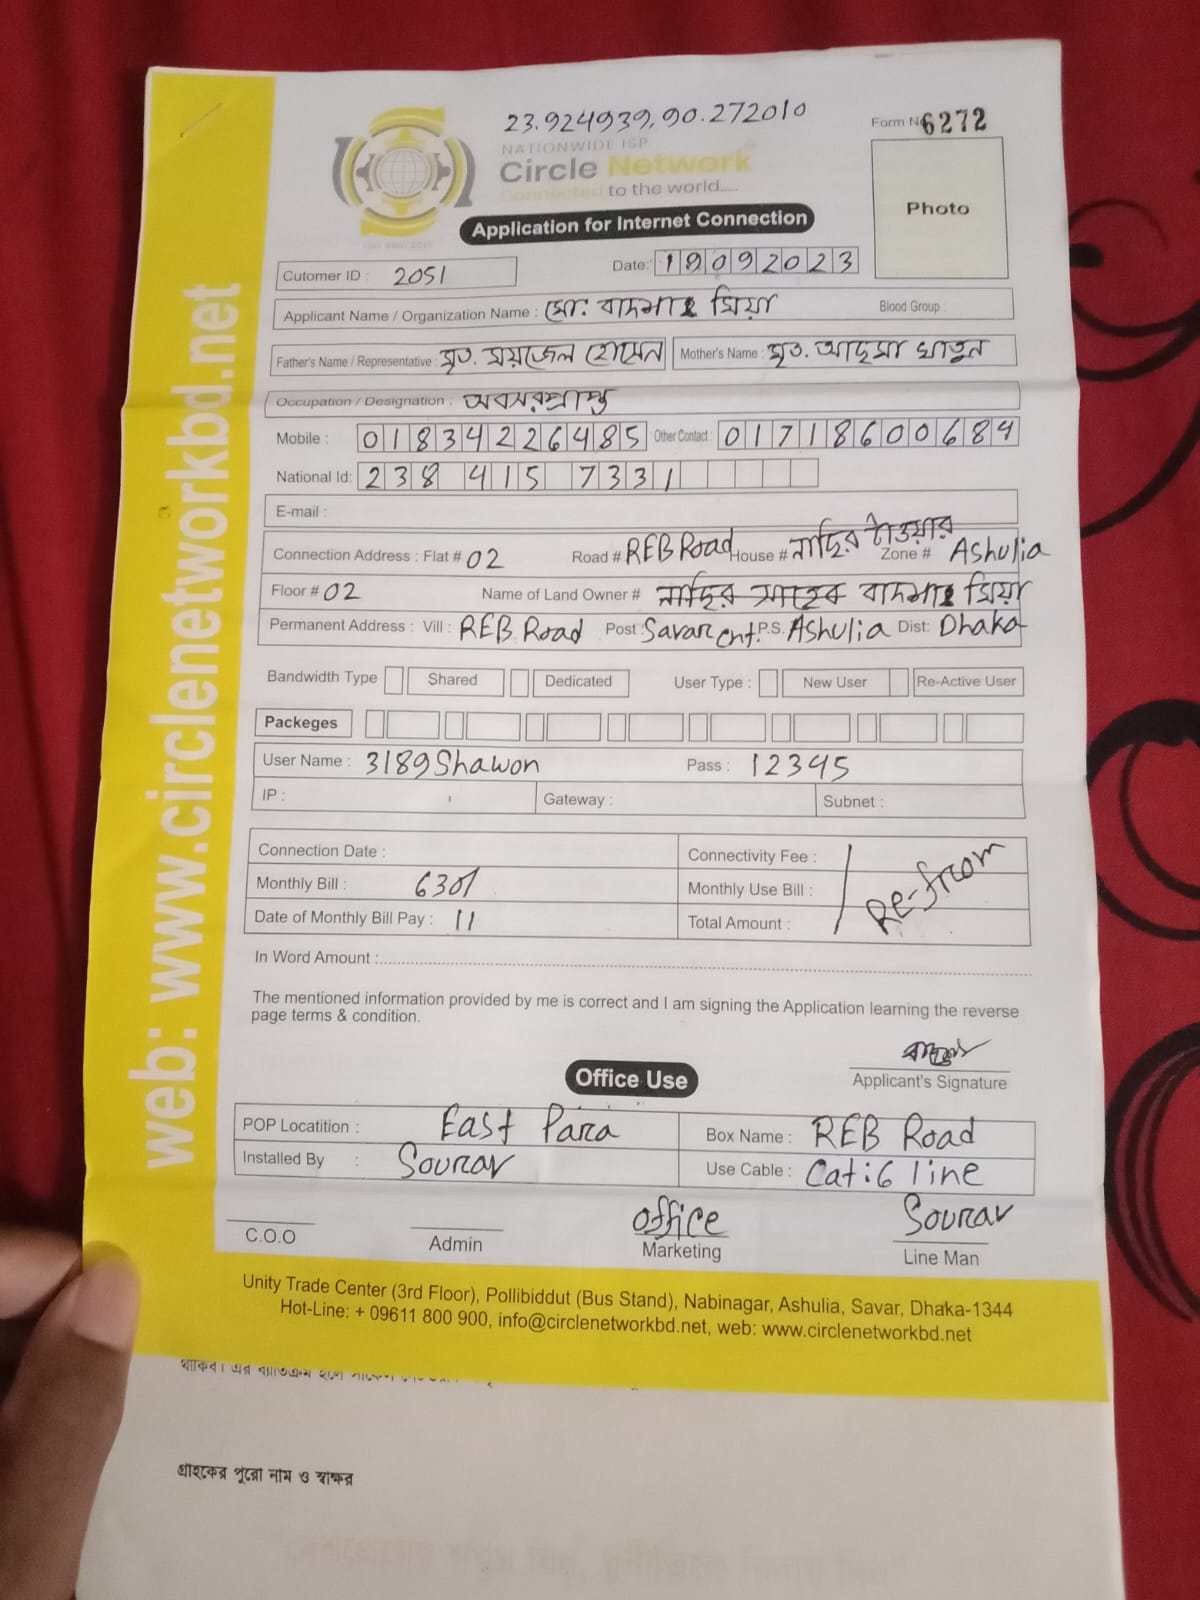 23.924939, 90.272010
Form No 6272
NATIONWIDE ISP
Circle Network
Connected to the world....
Photo
Application for Internet Connection
Cutomer ID : 2051 Date: 19092023
Applicant Name / Organization Name : মো: বাদশাহ মিয়া Blood Group :
Father's Name / Representative : মৃত. ময়জেল হোসেন Mother's Name : মৃত. আছমা খাতুন
Occupation / Designation : অবসরপ্রাপ্ত
Mobile : 01834226485 Other Contact : 01718600684
National Id: 238 415 7331
E-mail :
Connection Address : Flat # 02 Road # REB Road House # নাছির টাওয়ার Zone # Ashulia
Floor # 02 Name of Land Owner # নাছির সাহেব বাদশাহ মিয়া
Permanent Address : Vill : REB Road Post : Savar Cnt. P.S. Ashulia Dist: Dhaka
Bandwidth Type Shared Dedicated User Type : New User Re-Active User
Packeges
User Name : 3189Shawon Pass : 12345
IP : Gateway : Subnet :
Connection Date : Connectivity Fee :
Monthly Bill : 630/ Monthly Use Bill : Re-from
Date of Monthly Bill Pay : 11 Total Amount :
In Word Amount :
The mentioned information provided by me is correct and I am signing the Application learning the reverse
page terms & condition.
Applicant's Signature
Office Use
POP Locatition : East Para Box Name : REB Road
Installed By : Sourav Use Cable : Cat:6 line
C.O.O Admin office Marketing Sourav Line Man
Unity Trade Center (3rd Floor), Pollibiddut (Bus Stand), Nabinagar, Ashulia, Savar, Dhaka-1344
Hot-Line: + 09611 800 900, info@circlenetworkbd.net, web: www.circlenetworkbd.net
web: www.circlenetworkbd.net
গ্রাহকের পুরো নাম ও স্বাক্ষর